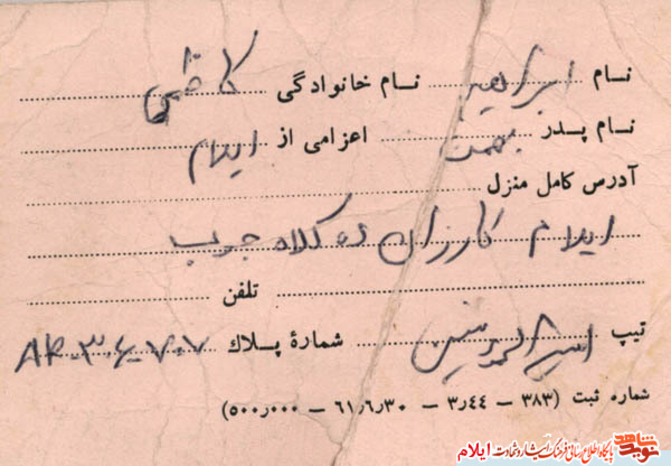 نام ابراهیم نام خانوادگی کاظمی
نام پدر نعمت اعزامی از ایلام
آدرس کامل منزل
ایلام کارزان ده کلاه جوب
تلفن
تیپ امیرالمومنین شمارهٔ پلاک AR-۳۰۶-۷۰۷
شماره ثبت (۳۸۳ – ۳٫۴۴ – ۶۱٫۶٫۳۰ – ۵۰۰٫۰۰۰)
نوید شاهد پایگاه اطلاع رسانی فرهنگ ایثار و شهادت ایلام